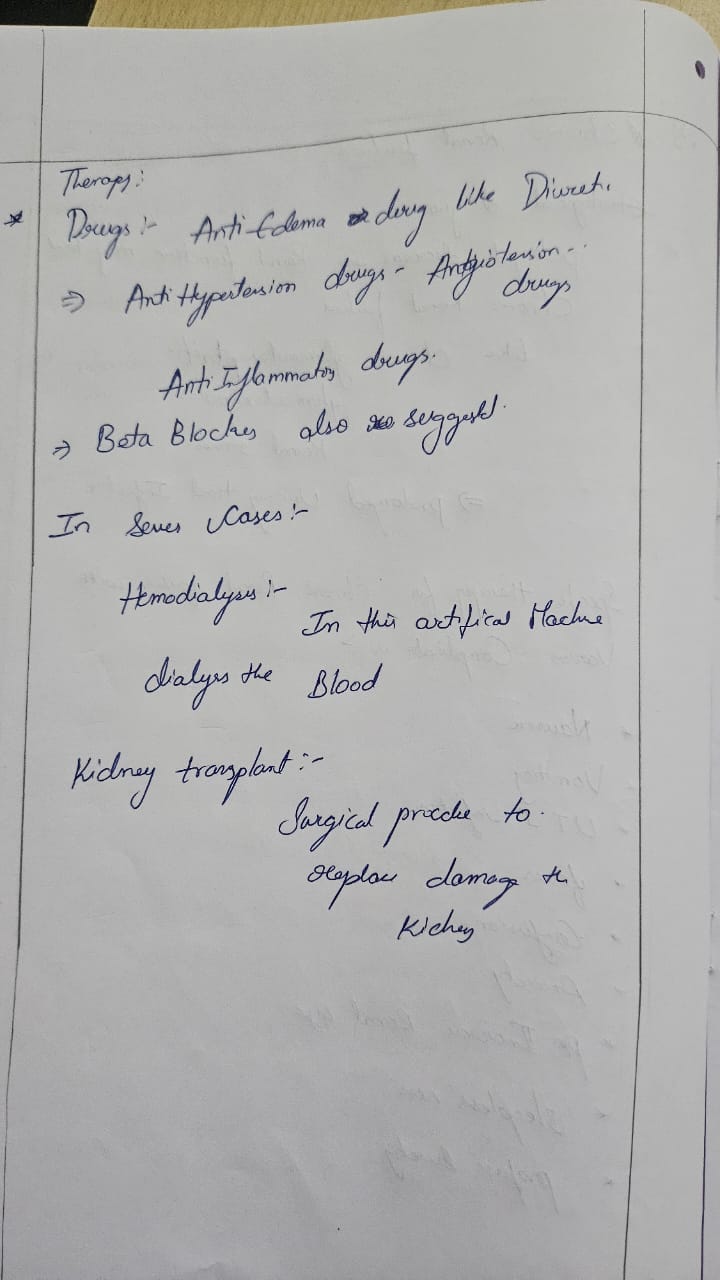 Therapy:
* Drugs :- Anti Edema drug like Diureti.
⇒ Anti Hypertension drugs - Angiotension -..
drugs
Anti Inflammatory drugs.
⇒ Beta Blockes also suggestd.
In Seves Cases :-
Hemodialyses :-
In this artifical Machne
dialyses the Blood
Kidney transplant :-
Surgical procdue to
replace damage the
Kidney